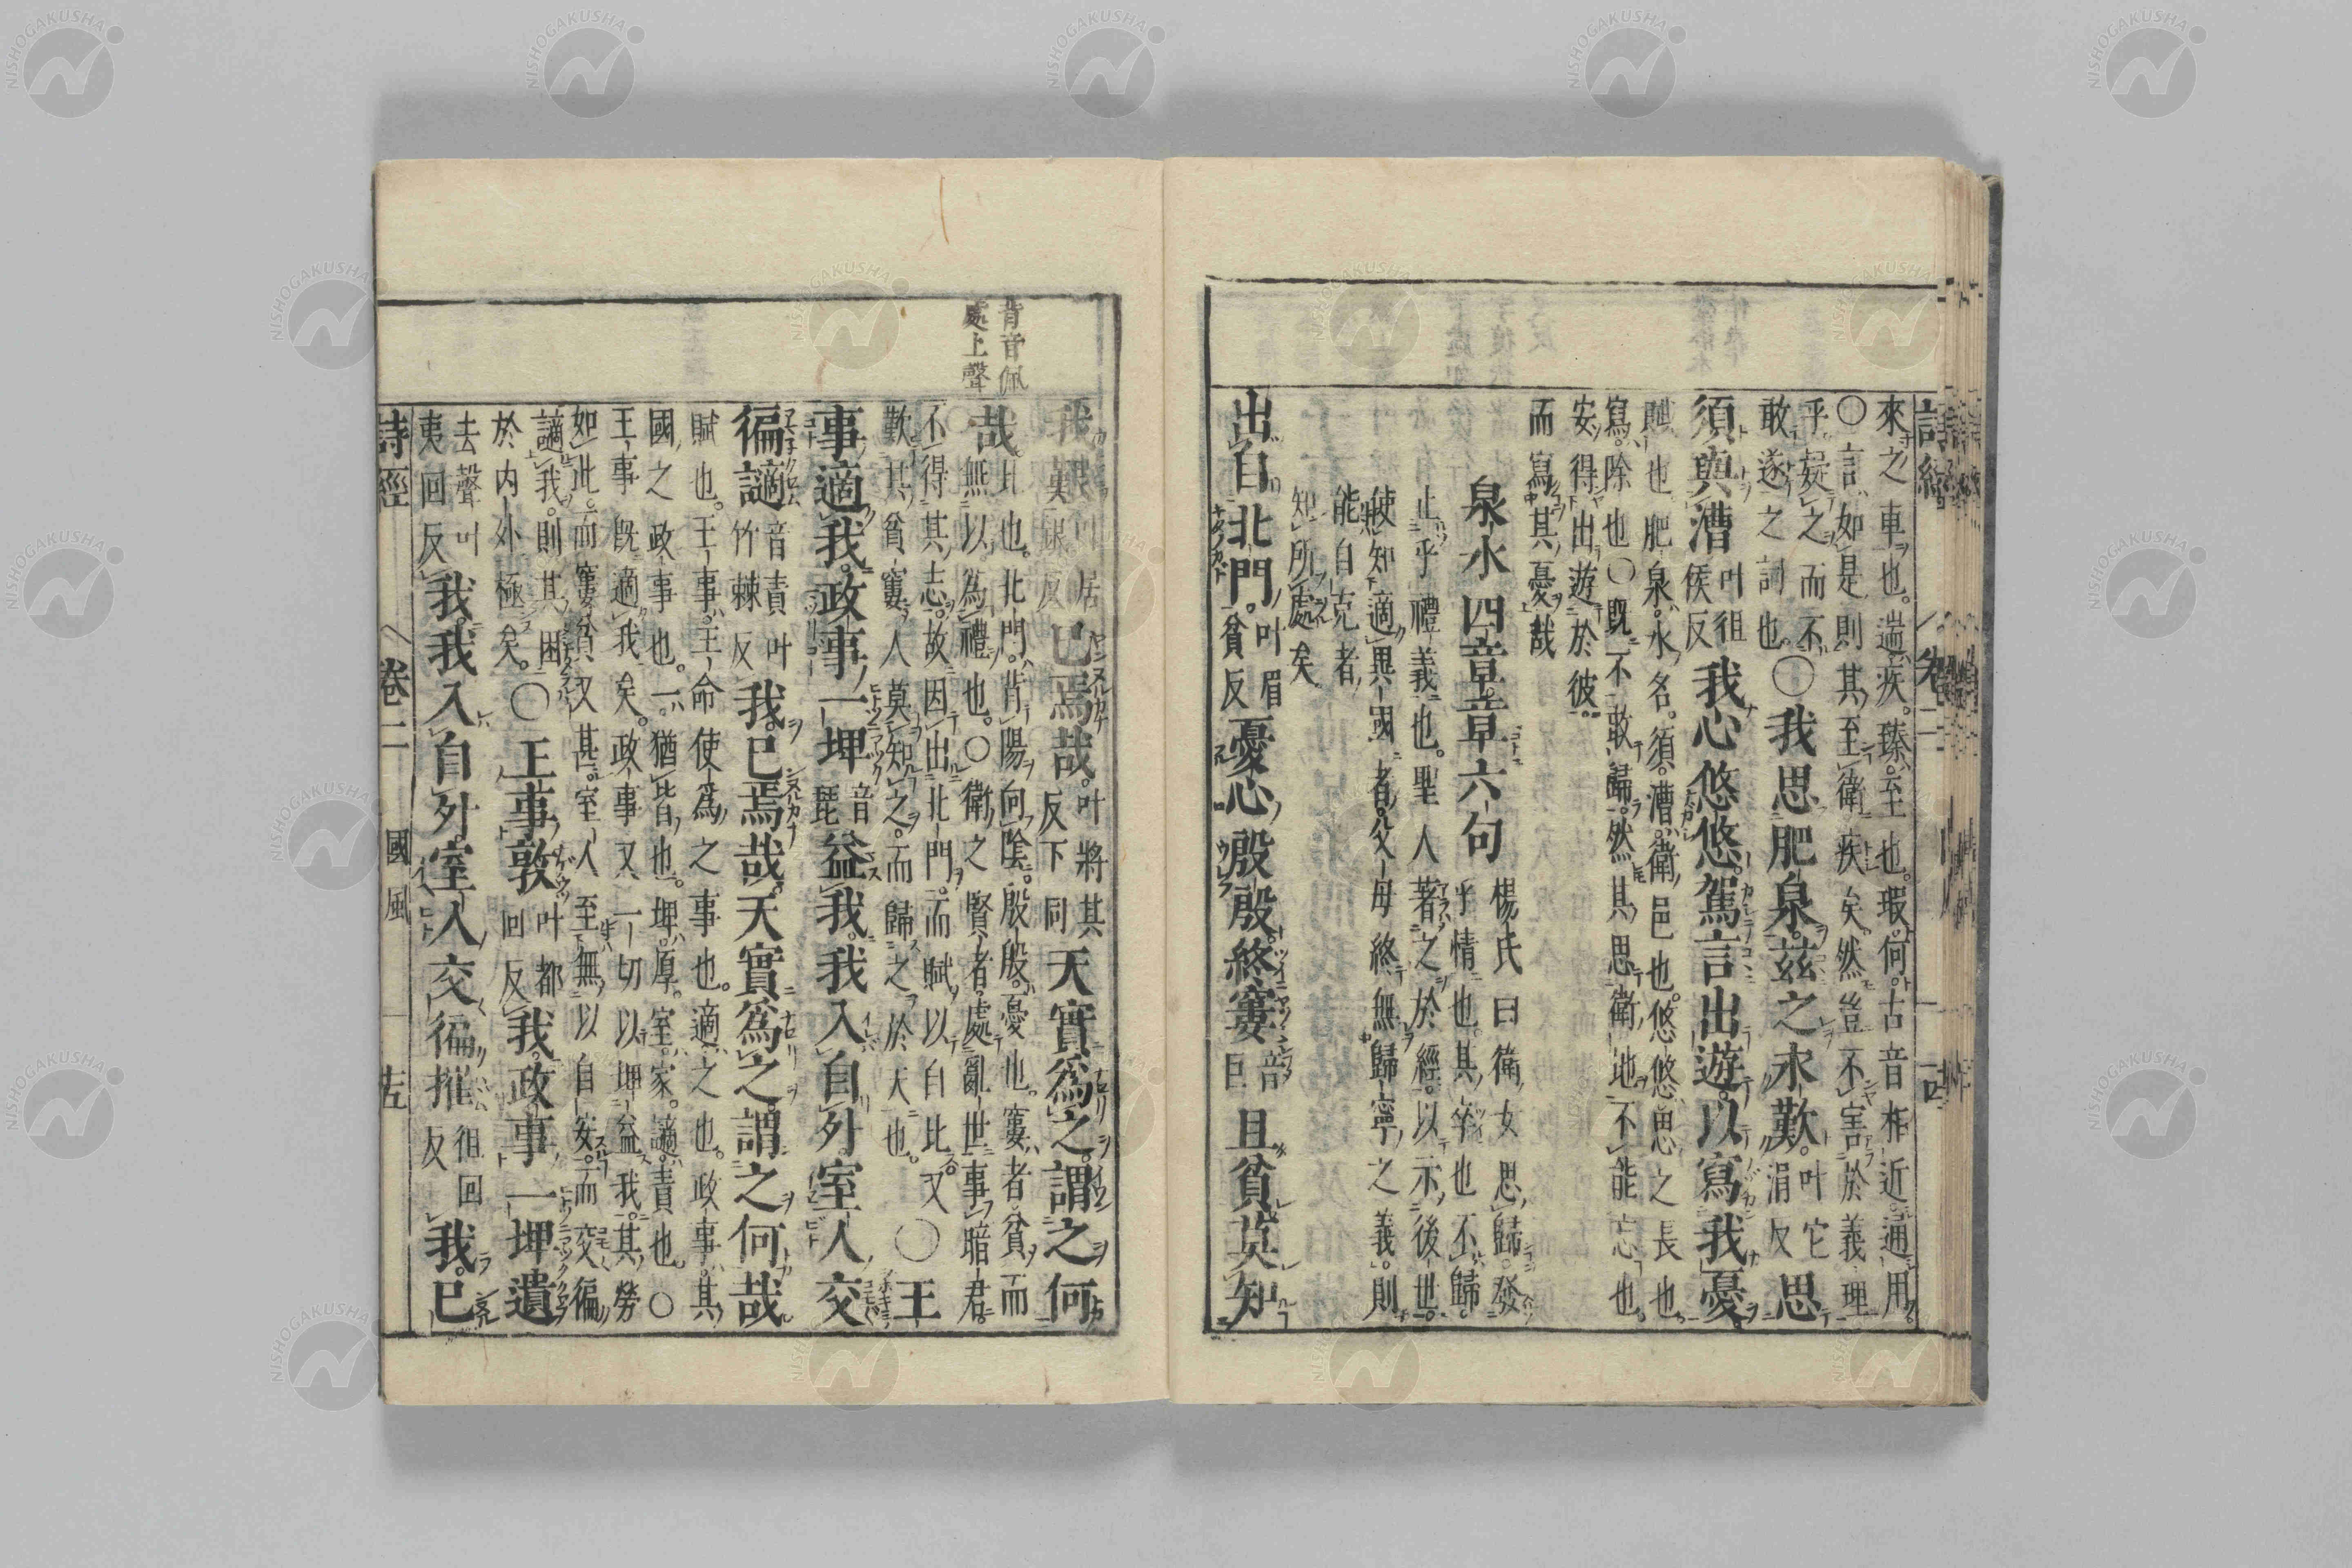 來之車也。遄疾。臻至也。瑕何。古音相近。通用。
○言如是則其至衛疾矣。然豈不害於義理
乎。疑之而不
敢遂之詞也。○我思肥泉。茲之永歎。叶它涓反思
須與漕叶徂侯反我心悠悠。駕言出遊。以寫我憂。
賦也肥泉。水名。須。漕。衛邑也。悠悠思之長也。
寫。除也○既不敢歸。然其思衛地不能忘也。
安得出遊於彼。
而寫其憂哉
泉水四章章六句
楊氏曰衛女思歸。發
乎情也。其卒也不歸。
止乎禮義也。聖人著之於經。以示後世。
使知適異國者。父母終無歸寧之義。則
能自克者。
知所處矣
出自北門。叶眉貧反憂心殷殷。終窶音巨且貧。莫知
詩經
卷二
背音佩
處上聲
我艱叶居銀反已焉哉。叶將其反下同天實爲之。謂之何
哉。比也。北門。背陽向陰。殷殷。憂也。窶者。貧而
無以為禮也。○衛之賢者。處亂世事暗君。
不得其志。故因出北門。而賦以自比。又
歎其貧窶。人莫知之。而歸之於天也。○王
事適我。政事一埤音琵益我。我入自外室人交
徧讁音責叶竹棘反我。已焉哉。天實爲之。謂之何哉
賦也。王事。王命使為之事也。適之也。政事。其
國之政事也。一。猶皆也。埤。厚。室。家。讁。責也。○
王事既適我矣。政事又一切以埤益我。其勞
如此。而窶貧又甚。室人至無以自安。而交徧
讁我。則其困
於内外極矣。○王事敦叶都回反我。政事一埤遺
去聲叶夷回反我。我入自外。室人交徧摧徂回反我。已
詩經
卷二
國風